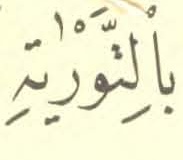 بِالتَّوْرٰيةِ